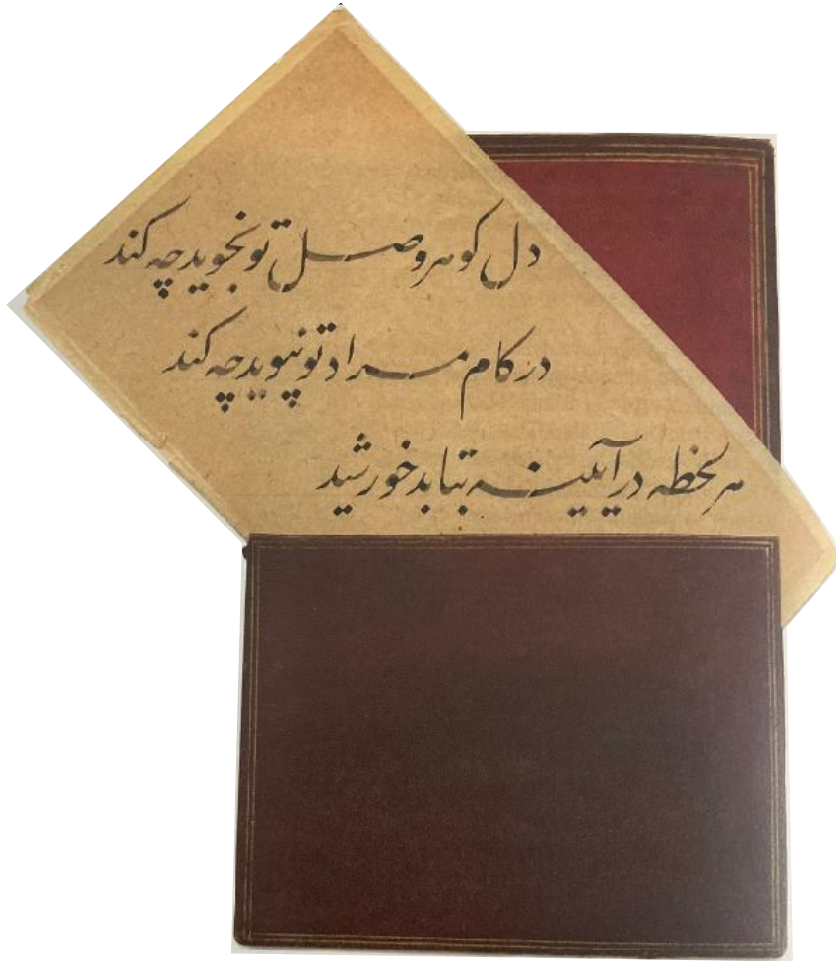 دل کوهر وصل تو نجوید چه کند
در کام مراد تو نپوید چه کند
هر لحظه در آیینه بتابد خورشید